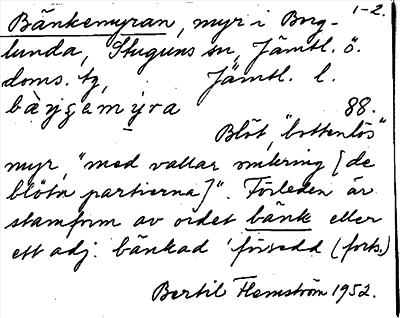 1-2.
Bänkemyran, myr i Brg-
lunda, Stuguns sn, Jämtl. ö.
doms. tg, Jämtl. l.
88.
Blöt, "bottenlös"
myr, "med vallar omkring [de
blöta partierna]". Förleden är
stamform av ordet bänk eller
ett adj. bänkad 'försedd (forts.)
Bertil Flemström 1952.